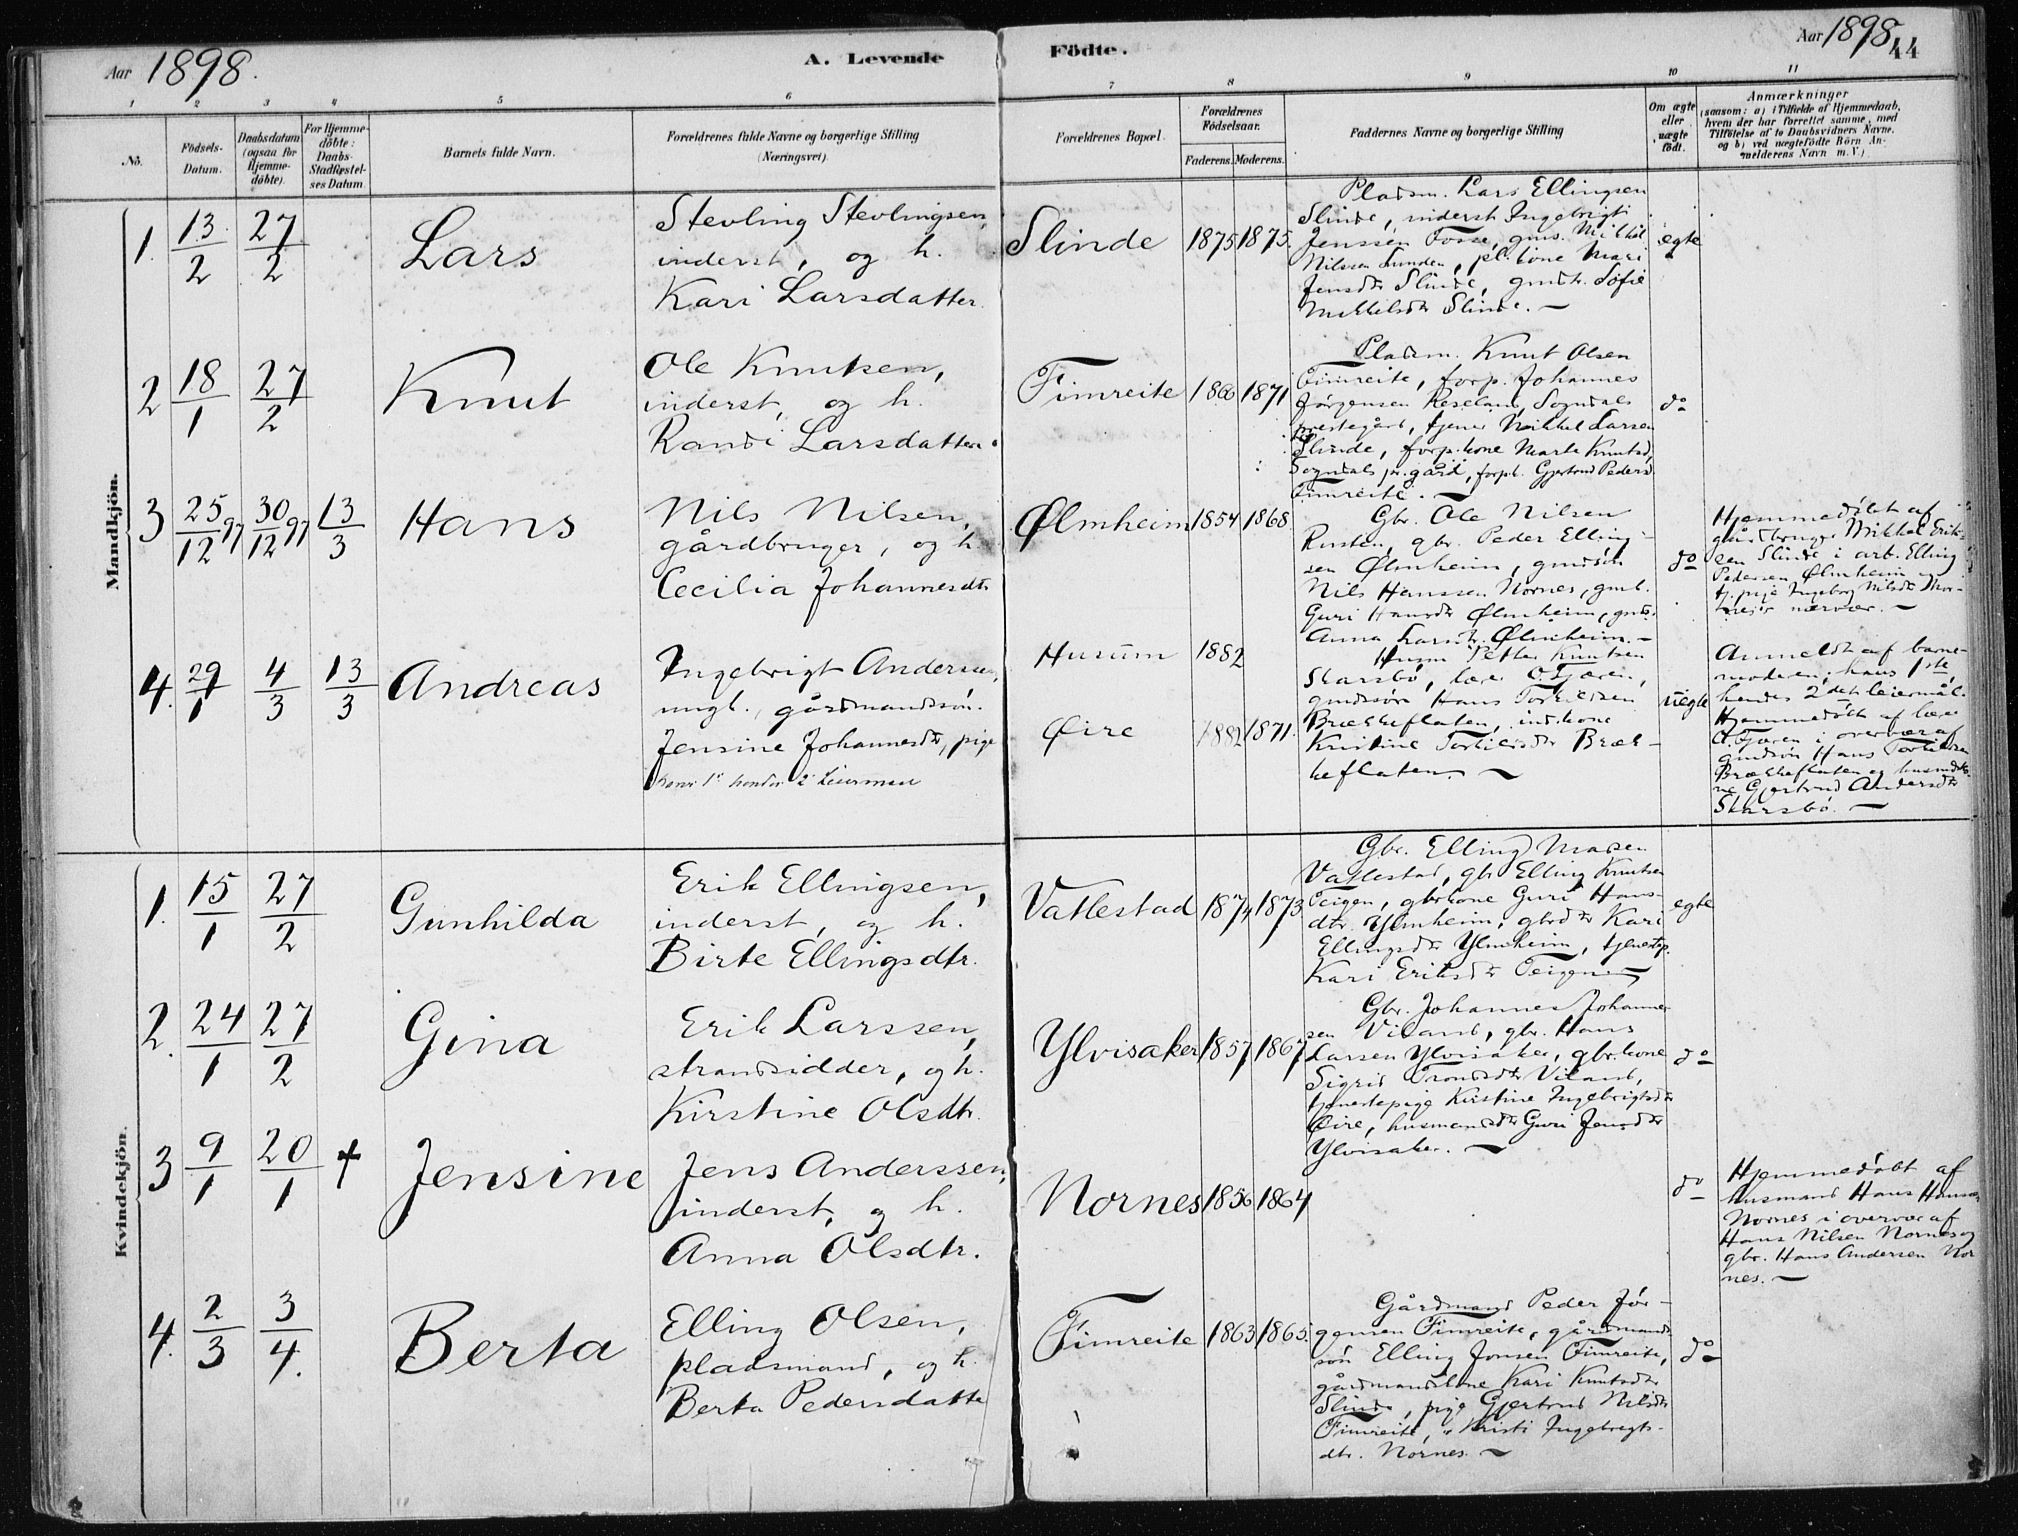 Aar 1898.
A. Levende Födte.
Aar 1898.
44
1 2 3 4 5 6 7 8 9 10 11
No.
Födsels-
Datum.
Daabsdatum
(ogsaa for
Hjemme-
döbte).
For Hjemme-
döbte:
Daabs-
Stadfæstel-
ses Datum
Barnets fulde Navn.
Forældrenes fulde Navne og borgerlige Stilling
(Næringsvei).
Forældrenes Bopæl.
Forældrenes
Födselsaar.
Faderens. Moderens.
Faddernes Navne og borgerlige Stilling
Om ægte
eller
uægte
födt.
Anmærkninger
(saasom: a) i Tilfælde af Hjemmedaab,
hvem der har forrettet samme, med
Tilföielse af to Daabsvidners Navne.
og b) ved uægtefödte Börn An-
melderens Navn m. V.)
Mandkjön.
1. 13/2 27/2 Lars
Stevling Stevlingsen,
inderst, og h.
Kari Larsdatter.
Slinde 1875 1875.
Pladsm. Lars Ellingsen
Slinde, inderst Ingebrigt
Jenssen Fosse, gms. Mikkel
Nilssen Lunden, pl. kone Mari
Jensdtr Slinde, gmdtr. Sofie
Mikkelsdtr Slinde. —
egte
2 18/1 27/2 Knut
Ole Knutsen,
inderst, og h.
Randi Larsdatter.
Fimreite 1866 1871
Pladsm. Knut Olsen
Fimreite, forp. Johannes
Jørgensen Reseland, Sogndals
prestegård, tjener Mikkel Larsen
Slinde, forp. kone Marta Knutsd,
Sogndals pr. gård, forpd. Gjertrud Pedersd.
Fimreite. —
do
3 25/12 97 30/12 97 13/3 Hans
Nils Nilsen,
gårdbruger, og h
Cecilia Johannesdtr.
Ølmheim 1854 1868.
Gbr. Ole Nilsen
Rusten, gbr. Peder Elling-
sen Ølmheim, gmdsøn
Nils Hanssen Nornes, gmk.
Guri Hansdtr Ølmheim, gmds.
Anna Larsdtr. Ølmheim. —
do
Hjemmedøbt af
gårdbruger Mikkel Erik-
sen Slinde i
Pedersen Ølmheim og
tj. pige Ingeborg Nilsdtr
nærvær. —
4. 29/1 4/3 13/3 Andreas
Ingebrigt Anderssen,
ungk., gårdmandssøn.
Jensine Johannesdtr, pige
hans 1ste hendes 2det Leiermaal
Husum 1882
Øire 1882 1871.
Husm Petter Knutsen
Skarsbø, lærer O. Fjæren,
gmdssøn Hans Torkildsen
Brækkeflaten, ind. kone
Kristine Torkildsdtr Bræk-
keflaten. —
uegte
Anmeldt af barne-
moderen; hans 1ste,
hendes 2det leiermål.
Hjemmedøbt af lærer
O. Fjæren i overvær af
gmdsøn Hans Torkildsen
Brækkeflaten og husmdsko-
ne Gjertrud Andersdtr
Skarsbø. —
Kvindekjön.
1. 15/1 27/2 Gunhilda
Erik Ellingsen,
inderst, og h.
Birte Ellingsdtr.
Vatlestad 1874 1873
Gbr. Elling Madsen
Vatlestad, gbr Elling Knutsen
Teigen, gbrkone Guri Hans-
dtr. Ylmheim, gbrdtr Kari
Ellingsdtr Ylmheim, tjenestep.
Kari Eriksdtr Teigen —
egte
2. 24/1 27/2 Gina
Erik Larssen,
strandsidder, og h.
Kirstine Olsdtr.
Ylvisaker 1857 1867
Gbr. Johannes Johanne-
sen Viland, gbr. Hans
Larsen Ylvisaker, gbr. kone
Sigrid Trondsdtr Viland,
tjenestepige Kirstine Ingebrigtsdtr
Øire, husmandsdtr Guri Jensdtr
Ylvisaker. —
do
3 9/1 20/1 + Jensine
Jens Anderssen,
inderst, og h.
Anna Olsdtr.
Nornes 1856 1864
do
Hjemmedøbt af
husmand Hans Hansen
Nornes i overvær af
Hans Nilsen Nornes og
gbr. Hans Andersen Nor
nes. —
4. 2/3 3/4. Berta
Elling Olsen,
pladsmand, og h.
Berta Pedersdatter
Fimreite 1863 1865.
Gårdmand Peder Jør-
gensen Fimreite, gårdmands-
søn Elling Jonsen Fimreite,
gårdmandskone Kari Knutsdtr
Slinde, pige Gjertrud Nilsdtr
Fimreite, " Kristi Ingebrigts-
dtr. Nornes. —
do